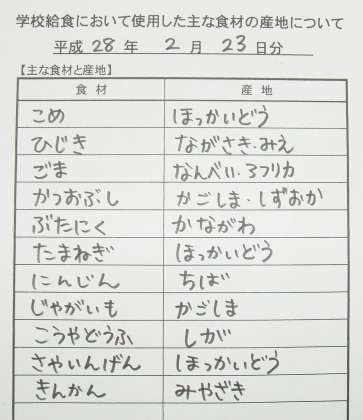 学校給食において使用した主な食材の産地について
平成 28 年 2 月 23 日分
【主な食材と産地】
食材 産地
こめ ほっかいどう
ひじき ながさき・みえ
ごま なんべい・アフリカ
かつおぶし かごしま・しずおか
ぶたにく かながわ
たまねぎ ほっかいどう
にんじん ちば
じゃがいも かごしま
こうやどうふ しが
さやいんげん ほっかいどう
きんかん みやざき